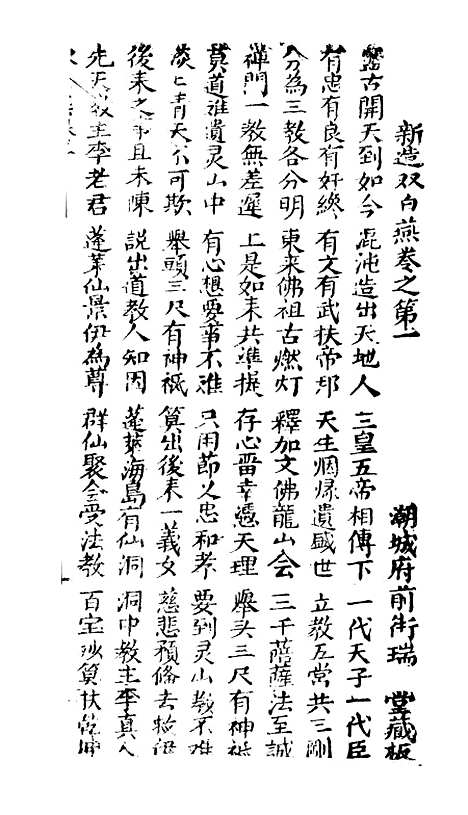 新造双白燕卷之第一　　湖城府前街瑞　堂藏板
盤古開天到如今　混沌造出天地人　三皇五帝相傳下　一代天子一代臣
有忠有良有奸終　有文有武扶帝邦　天生烟緣遺盛世　立教五常共三剛
分為三教各分明　東来佛祖古燃灯　釋加文佛龍山会　三千菩薩法至誠
禪門一教無差遲　上是如来共準提　存心畱幸憑天理　舉头三尺有神祗
莫道谁遺灵山中　有心想要事不难　只用節义忠和孝　要到灵山教不难
青天不可欺　舉頭三尺有神祗　算出後来一義女　慈悲預俻去
後来之事且未陳　説出道教人知因　蓬萊海島有仙洞　洞中教主李真人
先天教主李老君　蓬莱仙景伊為尊　群仙聚会受法教　百宝妙算扶乾坤